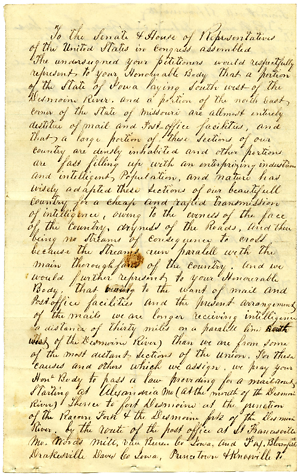 To the Senate & House of Representatives
of the United States in Congress assembled
The undersigned your petitioners would respectfully
represent to your Honorable Body that a portion
of the State of Iowa laying South west of the
Desmoin River, and a portion of the north east
corner of the State of Missouri are allmost entirely
destitute of mail and Post office facilities, and
that a large portion of these Sections of our
Country are densly inhabited and other portions
are fast filling up with an enterprizing industrious
and intelligent Population, and nature has
wisely adapted these Sections of our beautifull
Country for a cheap and rapid transmission
of intelligence, owing to the eveness of the face
of the Country, dryness of the Roads, and there
being no Streams of consequence to cross
because the Streams run parallel with the
main thoroughfares of the Country, and we
would further represent to your Honourable
Body, that owing to the want of mail and
Post office facilities and the present arrangement
of the mails we are longer receiving intelligence
a distance of thirty miles on a parallel line South
west of the Desmoin River) than we are from some
of the most distant Sections of the Union. For these
causes and others which we assign, we pray your
Hon Body to pass a law providing for a mail route
Starting at Alexandria Mo (at the mouth of the Desmoin
River) thence to fort Desmoin at the junction
of the Racoon fork & the Desmoin fork of the Desmoin
River, by the route of the post office at St Francisville
Mo. mill, Van Buren Co Iowa, and Fox, Bloomfield
Drakesville Davis Co Iowa, Princetown & Knoxville to